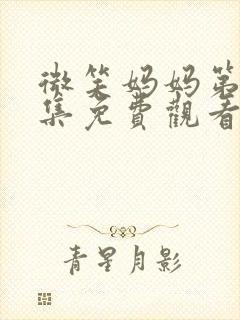 微笑妈妈第
集免費觀看
青星月影